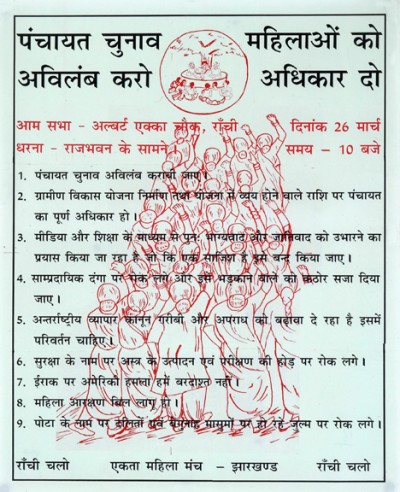 पंचायत चुनाव महिलाओं को
अविलंब करो अधिकार दो
आम सभा - अल्बर्ट एक्का चौक, राँची दिनांक 26 मार्च
धरना - राजभवन के सामने। समय - 10 बजे
1. पंचायत चुनाव अविलंब करायी जाए।
2. ग्रामीण विकास योजना निर्माण तथा योजना में व्यय होने वाले राशि पर पंचायत
का पूर्ण अधिकार हो।
3. मीडिया और शिक्षा के माध्यम से पुनः भाग्यवाद और जातिवाद को उभारने का
प्रयास किया जा रहा है जो कि एक साजिश है इसे बन्द किया जाए।
4. साम्प्रदायिक दंगा पर रोक लगे और इसे भड़काने वाले को कठोर सजा दिया
जाए।
5. अन्तर्राष्ट्रीय व्यापार कानून गरीबी और अपराध को बढ़ावा दे रहा है इसमें
परिवर्तन चाहिए।
6. सुरक्षा के नाम पर अस्त्र के उत्पादन एवं परीक्षण की होड़ पर रोक लगे।
7. ईराक पर अमेरिकी हमला हमें बरदाश्त नहीं।
8. महिला आरक्षण बिल लागू हो।
9. पोटा के नाम पर दलितों एवं बेगुनाह मासुमों पर हो रहे जुल्म पर रोक लगे।
राँची चलो एकता महिला मंच - झारखण्ड राँची चलो